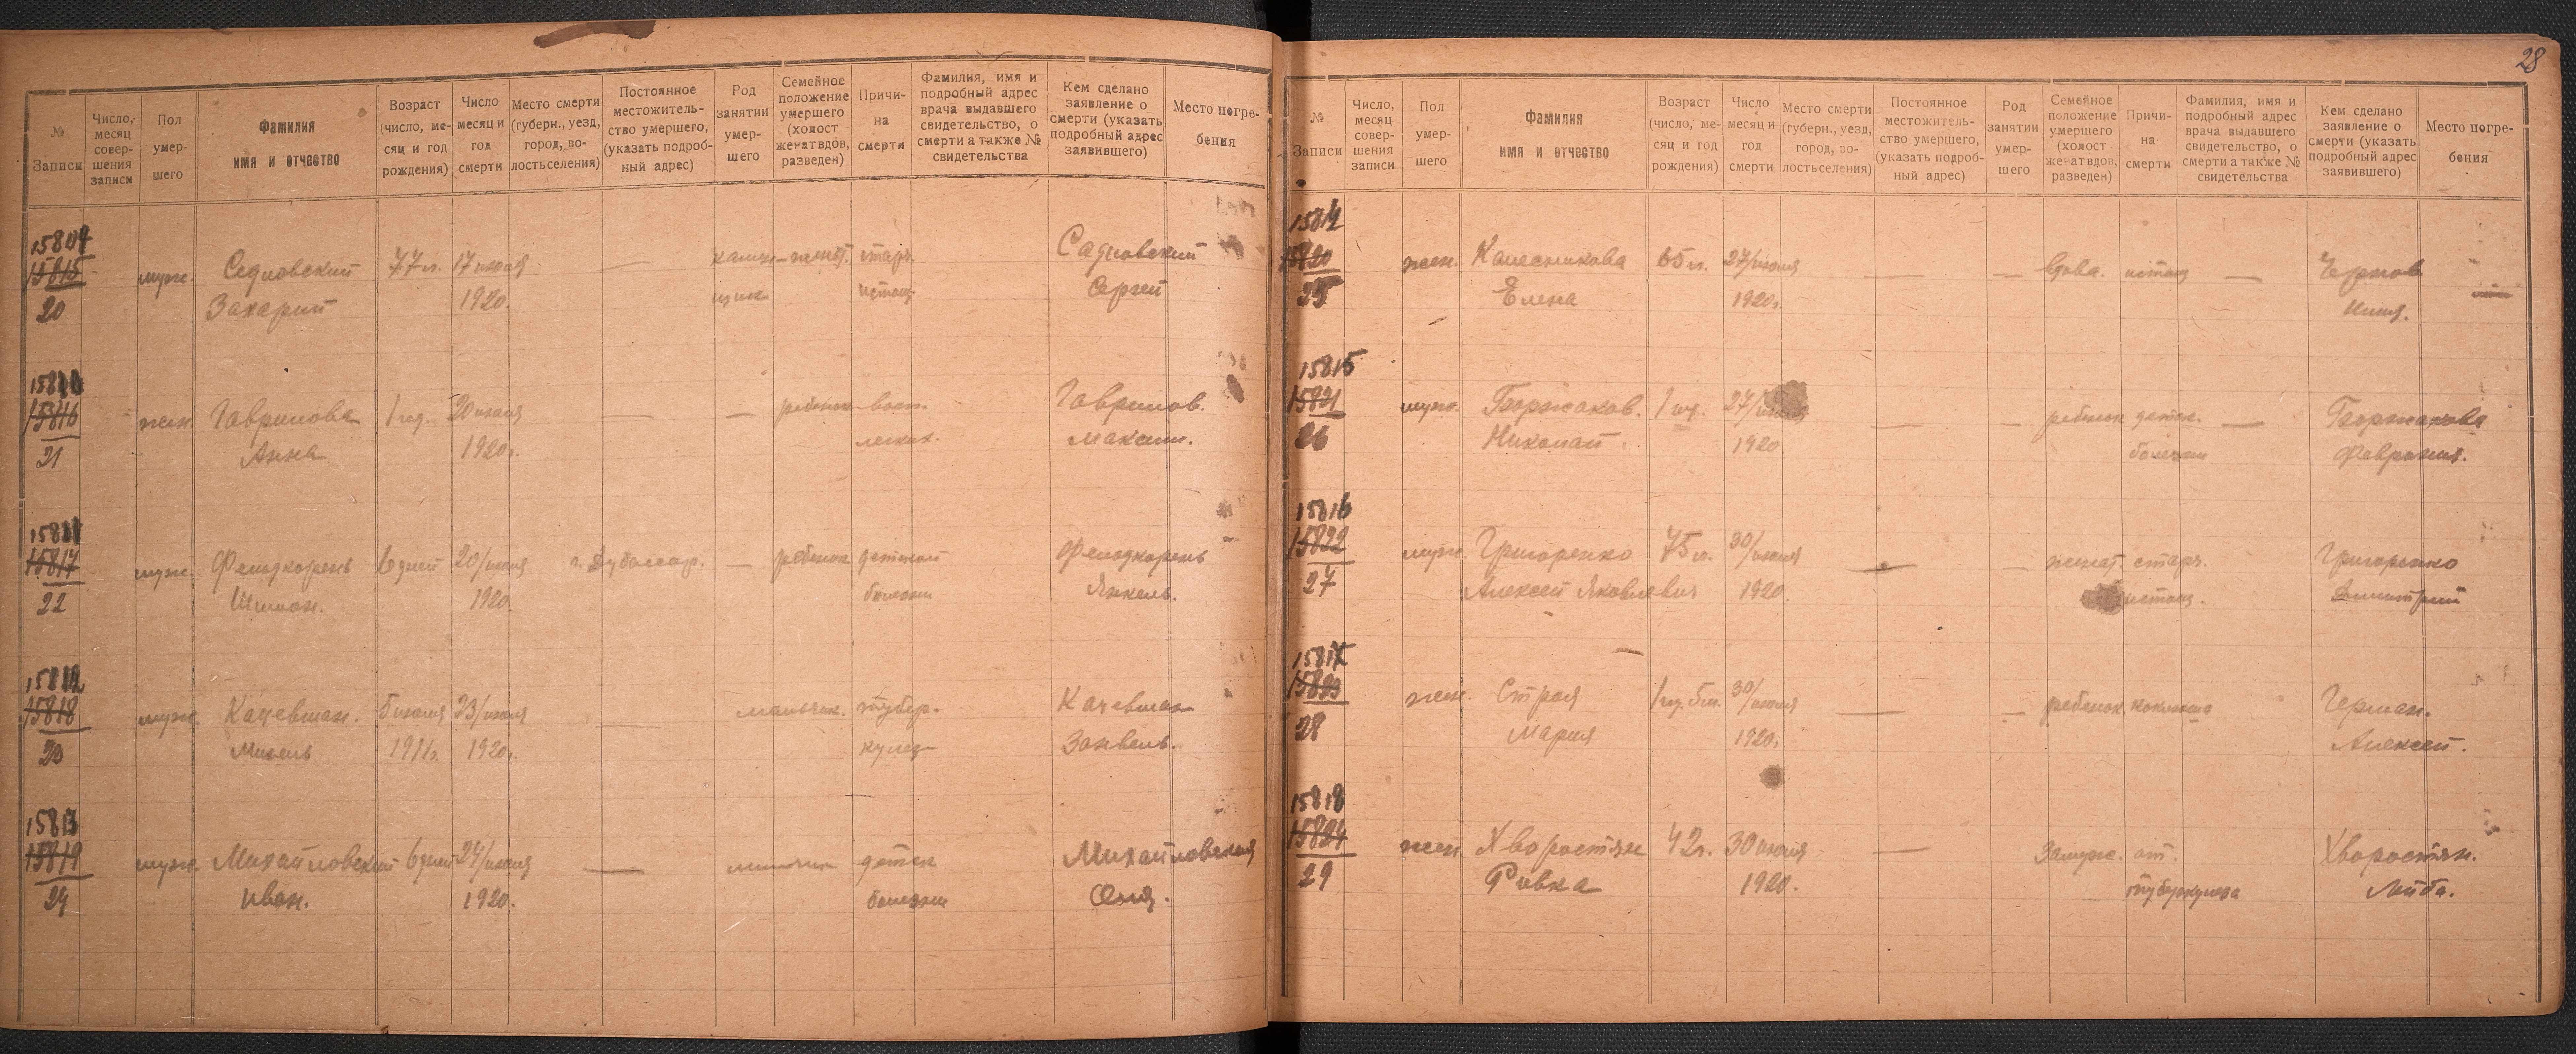 28
№ Записи
Число, месяц совершения записи
Пол умершего
Фамилия имя и отчество
Возраст (число, месяц и год рождения)
Число месяц и год смерти
Место смерти (губерн., уезд, город, волость селения)
Постоянное местожительство умершего, (указать подробный адрес)
Род занятии умершего
Семейное положение умершего (холост женат вдов, разведен)
Причина смерти
Фамилия, имя и подробный адрес врача выдавшего свидетельство, о смерти а также № свидетельства
Кем сделано заявление о смерти (указать подробный адрес заявившего)
Место погребения
15809
15815 муж. 77 л. 17 июня женат. стар. Садловский
20 Захарий 1920. истощ. Сергей
15810
15816 жен. Гаврилова 1 год. 20 июня ребенок восп. Гаврилов.
21 Анна 1920г. легких. Максим.
15811
15817 муж. 6 дней 20/июня ребенок детской
22 Шимон. 1920. болезни Янкель.
15812
15818 муж. Кацевман. 23/июня мальчик. тубер- Кацевман
23 1911г. 1920г. кулез Занвель.
15813
15819 муж. Михайловский 6 дней 24/июня детск Михайловская
24 Иван. 1920. болезни
№ Записи
Число, месяц совершения записи
Пол умершего
Фамилия имя и отчество
Возраст (число, месяц и год рождения)
Число месяц и год смерти
Место смерти (губерн., уезд, город, волость селения)
Постоянное местожительство умершего, (указать подробный адрес)
Род занятии умершего
Семейное положение умершего (холост женат вдов, разведен)
Причина смерти
Фамилия, имя и подробный адрес врача выдавшего свидетельство, о смерти а также № свидетельства
Кем сделано заявление о смерти (указать подробный адрес заявившего)
Место погребения
15814
15820 жен. Колесникова 65 л. 27/июня вдова. истощ Чернов
25 Елена 1920г.
15815
15821 муж. 1 год. 27/июня ребенок детск.
26 Николай. 1920 болезни
15816
15822 муж. Григоренко 75 л. 30/июня женат стар. Григоренко
27 Алексей Яковлевич 1920. истощ. Димитрий
15817
15823 жен. 30/июня ребенок коклюша Герман.
28 Мария 1920г. Алексей.
15818
15824 жен. Хворостян 42 г. 30 июня Замуж. от. Хворостян.
29 Ривка 1920. туберкулеза Лейба.